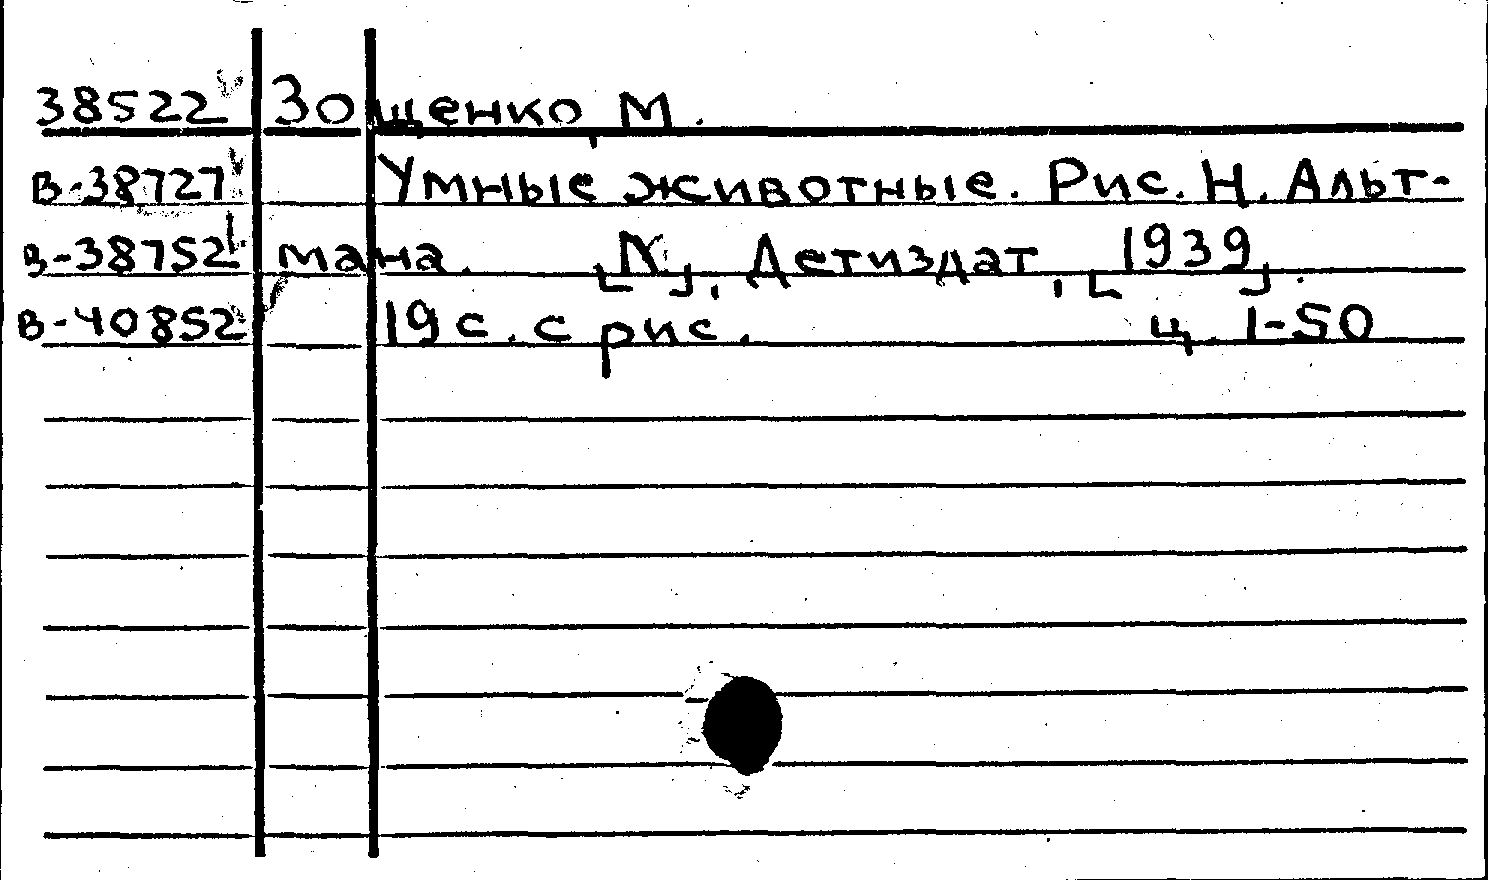 38522 Зощенко, М.
В-38727 Умные животные. Рис. Н. Альт-
В-38752 мана. [М.], Детиздат, [1939].
В-40852 19 с. с рис. ц. 1-50